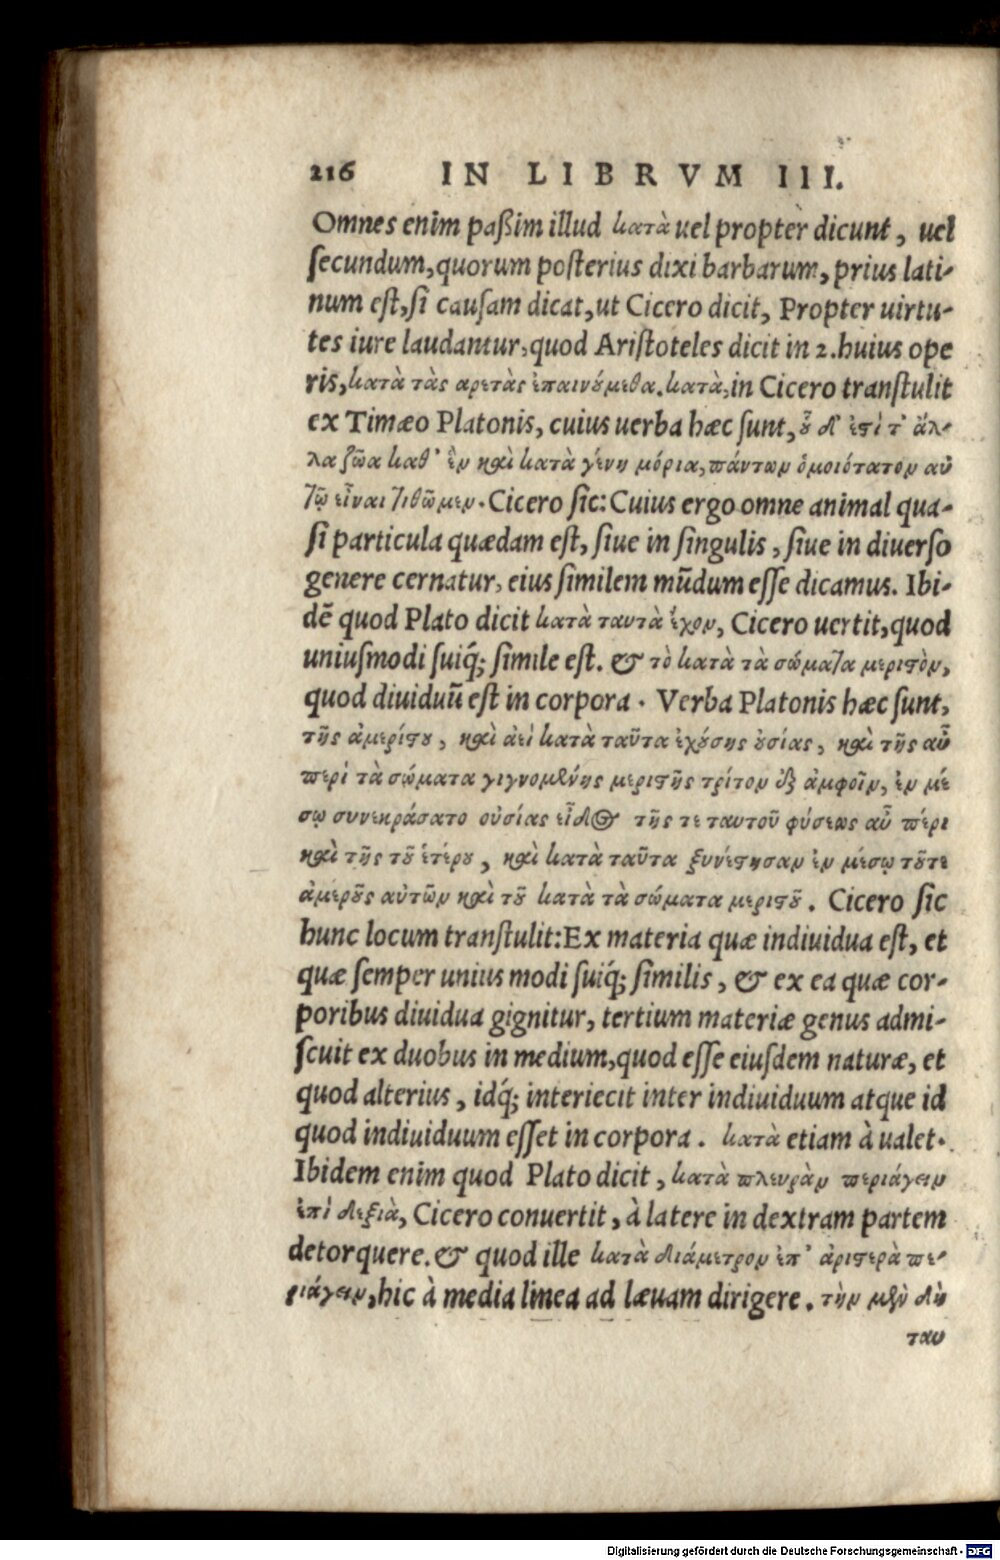 216 IN LIBRVM III.
Omnes enim paßim illud κατὰ uel propter dicunt, uel
ſecundum, quorum poſterius dixi barbarum, prius lati-
num eſt, ſi cauſam dicat, ut Cicero dicit, Propter uirtu-
tes iure laudamur, quod Ariſtoteles dicit in 2. huius ope
ris, κατὰ τὰς αρετὰς ἐπαινούμεθα. κατὰ, in Cicero tranſtulit
ex Timæo Platonis, cuius uerba hæc ſunt, οὗ δ' ἐστὶ τ' ἄλ-
λα ζῶα καθ' ἓν καὶ κατὰ γένη μόρια, πάντων ὁμοιότατον αὐ
τῷ εἶναι τιθῶμεν. Cicero ſic: Cuius ergo omne animal qua-
ſi particula quædam eſt, ſiue in ſingulis, ſiue in diuerſo
genere cernatur, eius ſimilem mūdum eſſe dicamus. Ibi-
dē quod Plato dicit κατὰ ταυτὰ ἔχον, Cicero uertit, quod
uniuſmodi ſuiq́; ſimile eſt. & τὸ κατὰ τὰ σώματα μεριστὸν,
quod diuiduū eſt in corpora. Verba Platonis hæc ſunt,
τῆς ἀμερίστου, καὶ ἀεὶ κατὰ ταῦτα ἐχούσης οὐσίας, καὶ τῆς αὖ
περὶ τὰ σώματα γιγνομένης μεριστῆς τρίτον ἐξ ἀμφοῖν, ἐν μέ
σῳ συνεκράσατο οὐσίας εἶδος τῆς τε ταυτοῦ φύσεως αὖ πέρι
καὶ τῆς τοῦ ἑτέρου, καὶ κατὰ ταῦτα ξυνέστησαν ἐν μέσῳ τοῦτε
ἀμεροῦς αὐτῶν καὶ τοῦ κατὰ τὰ σώματα μεριστοῦ. Cicero ſic
hunc locum tranſtulit: Ex materia quæ indiuidua eſt, et
quæ ſemper unius modi ſuiq́; ſimilis, & ex ea quæ cor-
poribus diuidua gignitur, tertium materiæ genus admi-
ſcuit ex duobus in medium, quod eſſe eiuſdem naturæ, et
quod alterius, idq́; interiecit inter indiuiduum atque id
quod indiuiduum eſſet in corpora. κατὰ etiam à ualet.
Ibidem enim quod Plato dicit, κατὰ πλευρὰν περιάγειν
ἐπὶ δεξιὰ, Cicero conuertit, à latere in dextram partem
detorquere. & quod ille κατὰ διάμετρον ἐπ' ἀριστερὰ πε-
ριάγειν, hic à media linea ad læuam dirigere. τὴν μὲν δὴ
ταυ
Digitalisierung gefördert durch die Deutsche Forschungsgemeinschaft - DFG